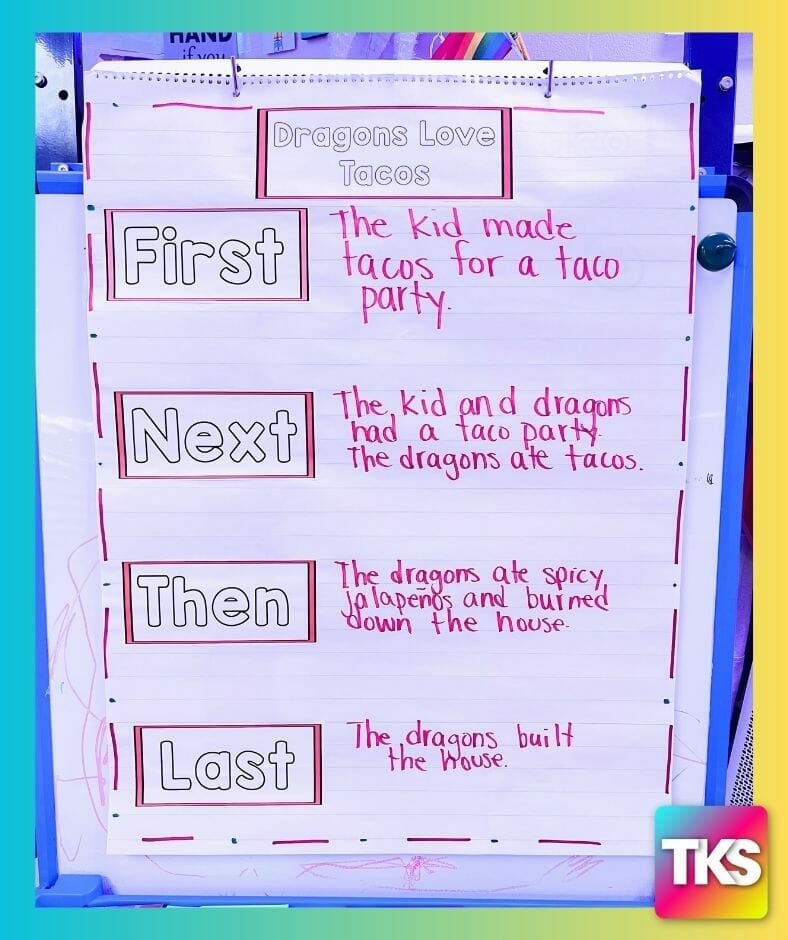 HAND
if you
Dragons Love
Tacos
First
The kid made
tacos for a taco
party.
Next
The kid and dragons
had a taco party.
The dragons ate tacos.
Then
The dragons ate spicy
jalapeños and burned
down the house.
Last
The dragons built
the house.
TKS